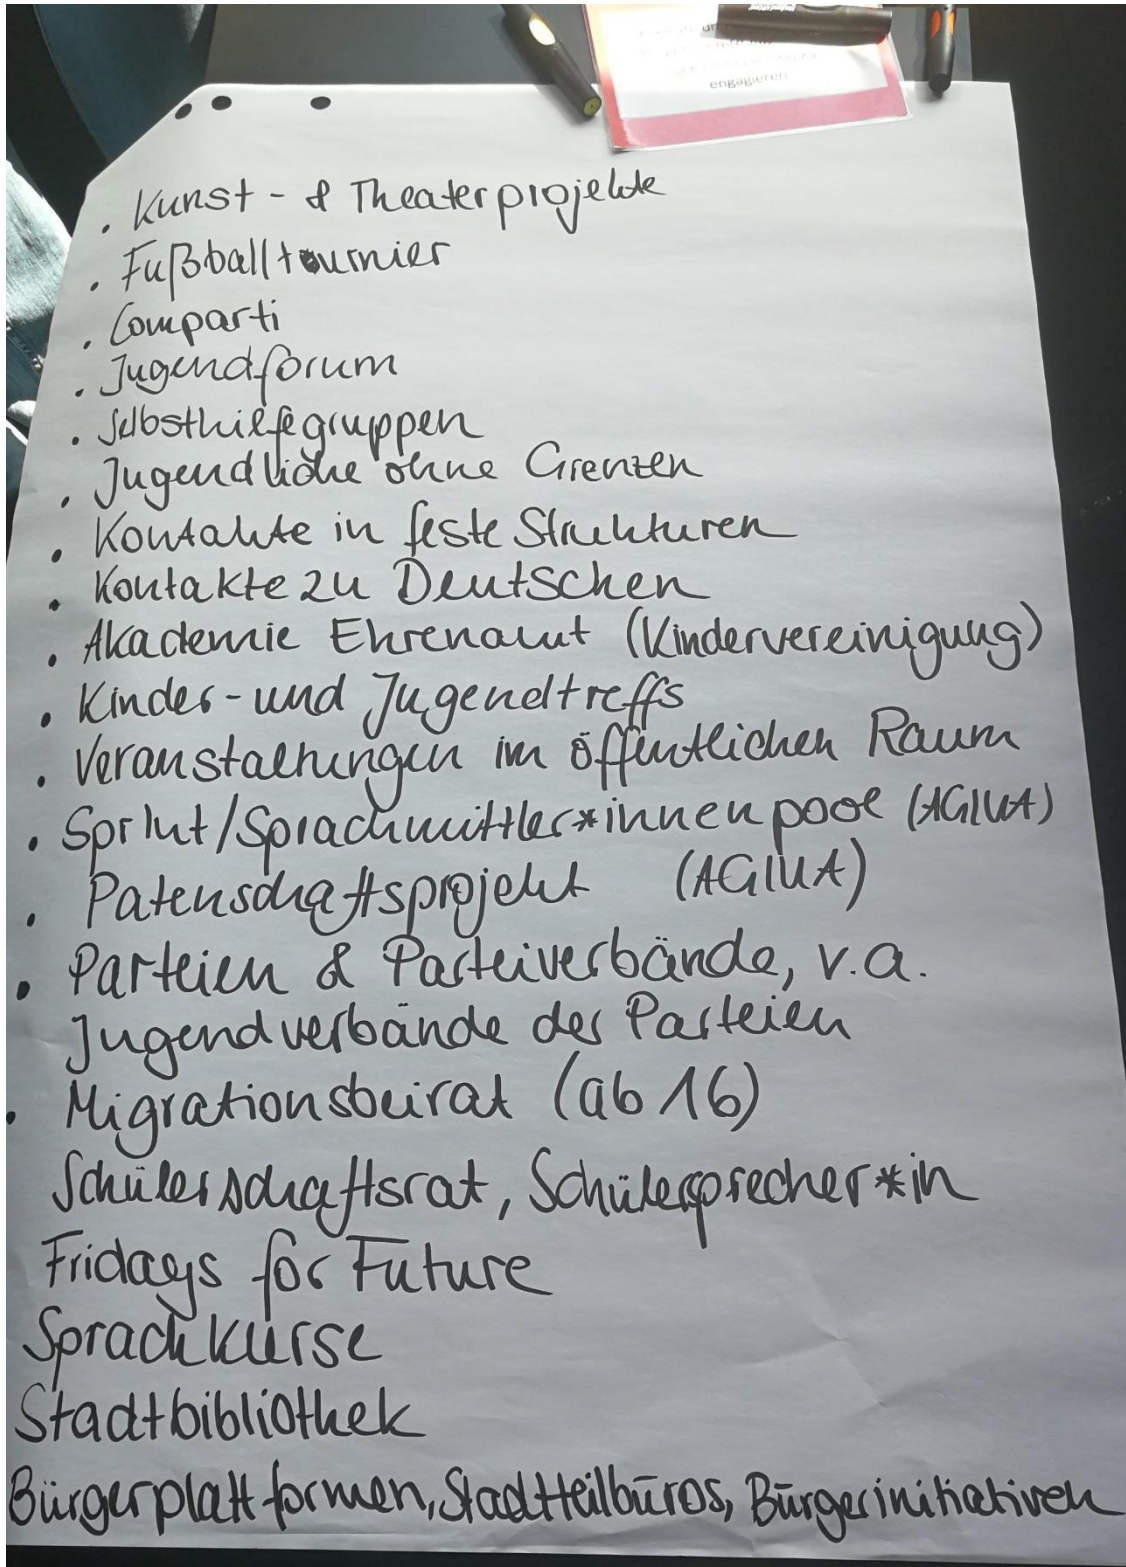 engagieren
· Kunst- & Theaterprojekte
· Fußballtournier
· Comparti
· Jugendforum
· Selbsthilfegruppen
· Jugendliche ohne Grenzen
· Kontakte in feste Strukturen
· Kontakte zu Deutschen
· Akademie Ehrenamt (Kindervereinigung)
· Kinder- und Jugendtreffs
· Veranstaltungen im öffentlichen Raum
· SprInt/Sprachmittler*innenpool (AGIUA)
· Patenschaftsprojekt (AGIUA)
· Parteien & Parteiverbände, v.a.
Jugendverbände der Parteien
· Migrationsbeirat (ab 16)
Schülerschaftsrat, Schülersprecher*in
Fridays for Future
Sprachkurse
Stadtbibliothek
Bürgerplattformen, Stadtteilbüros, Bürgerinitiativen